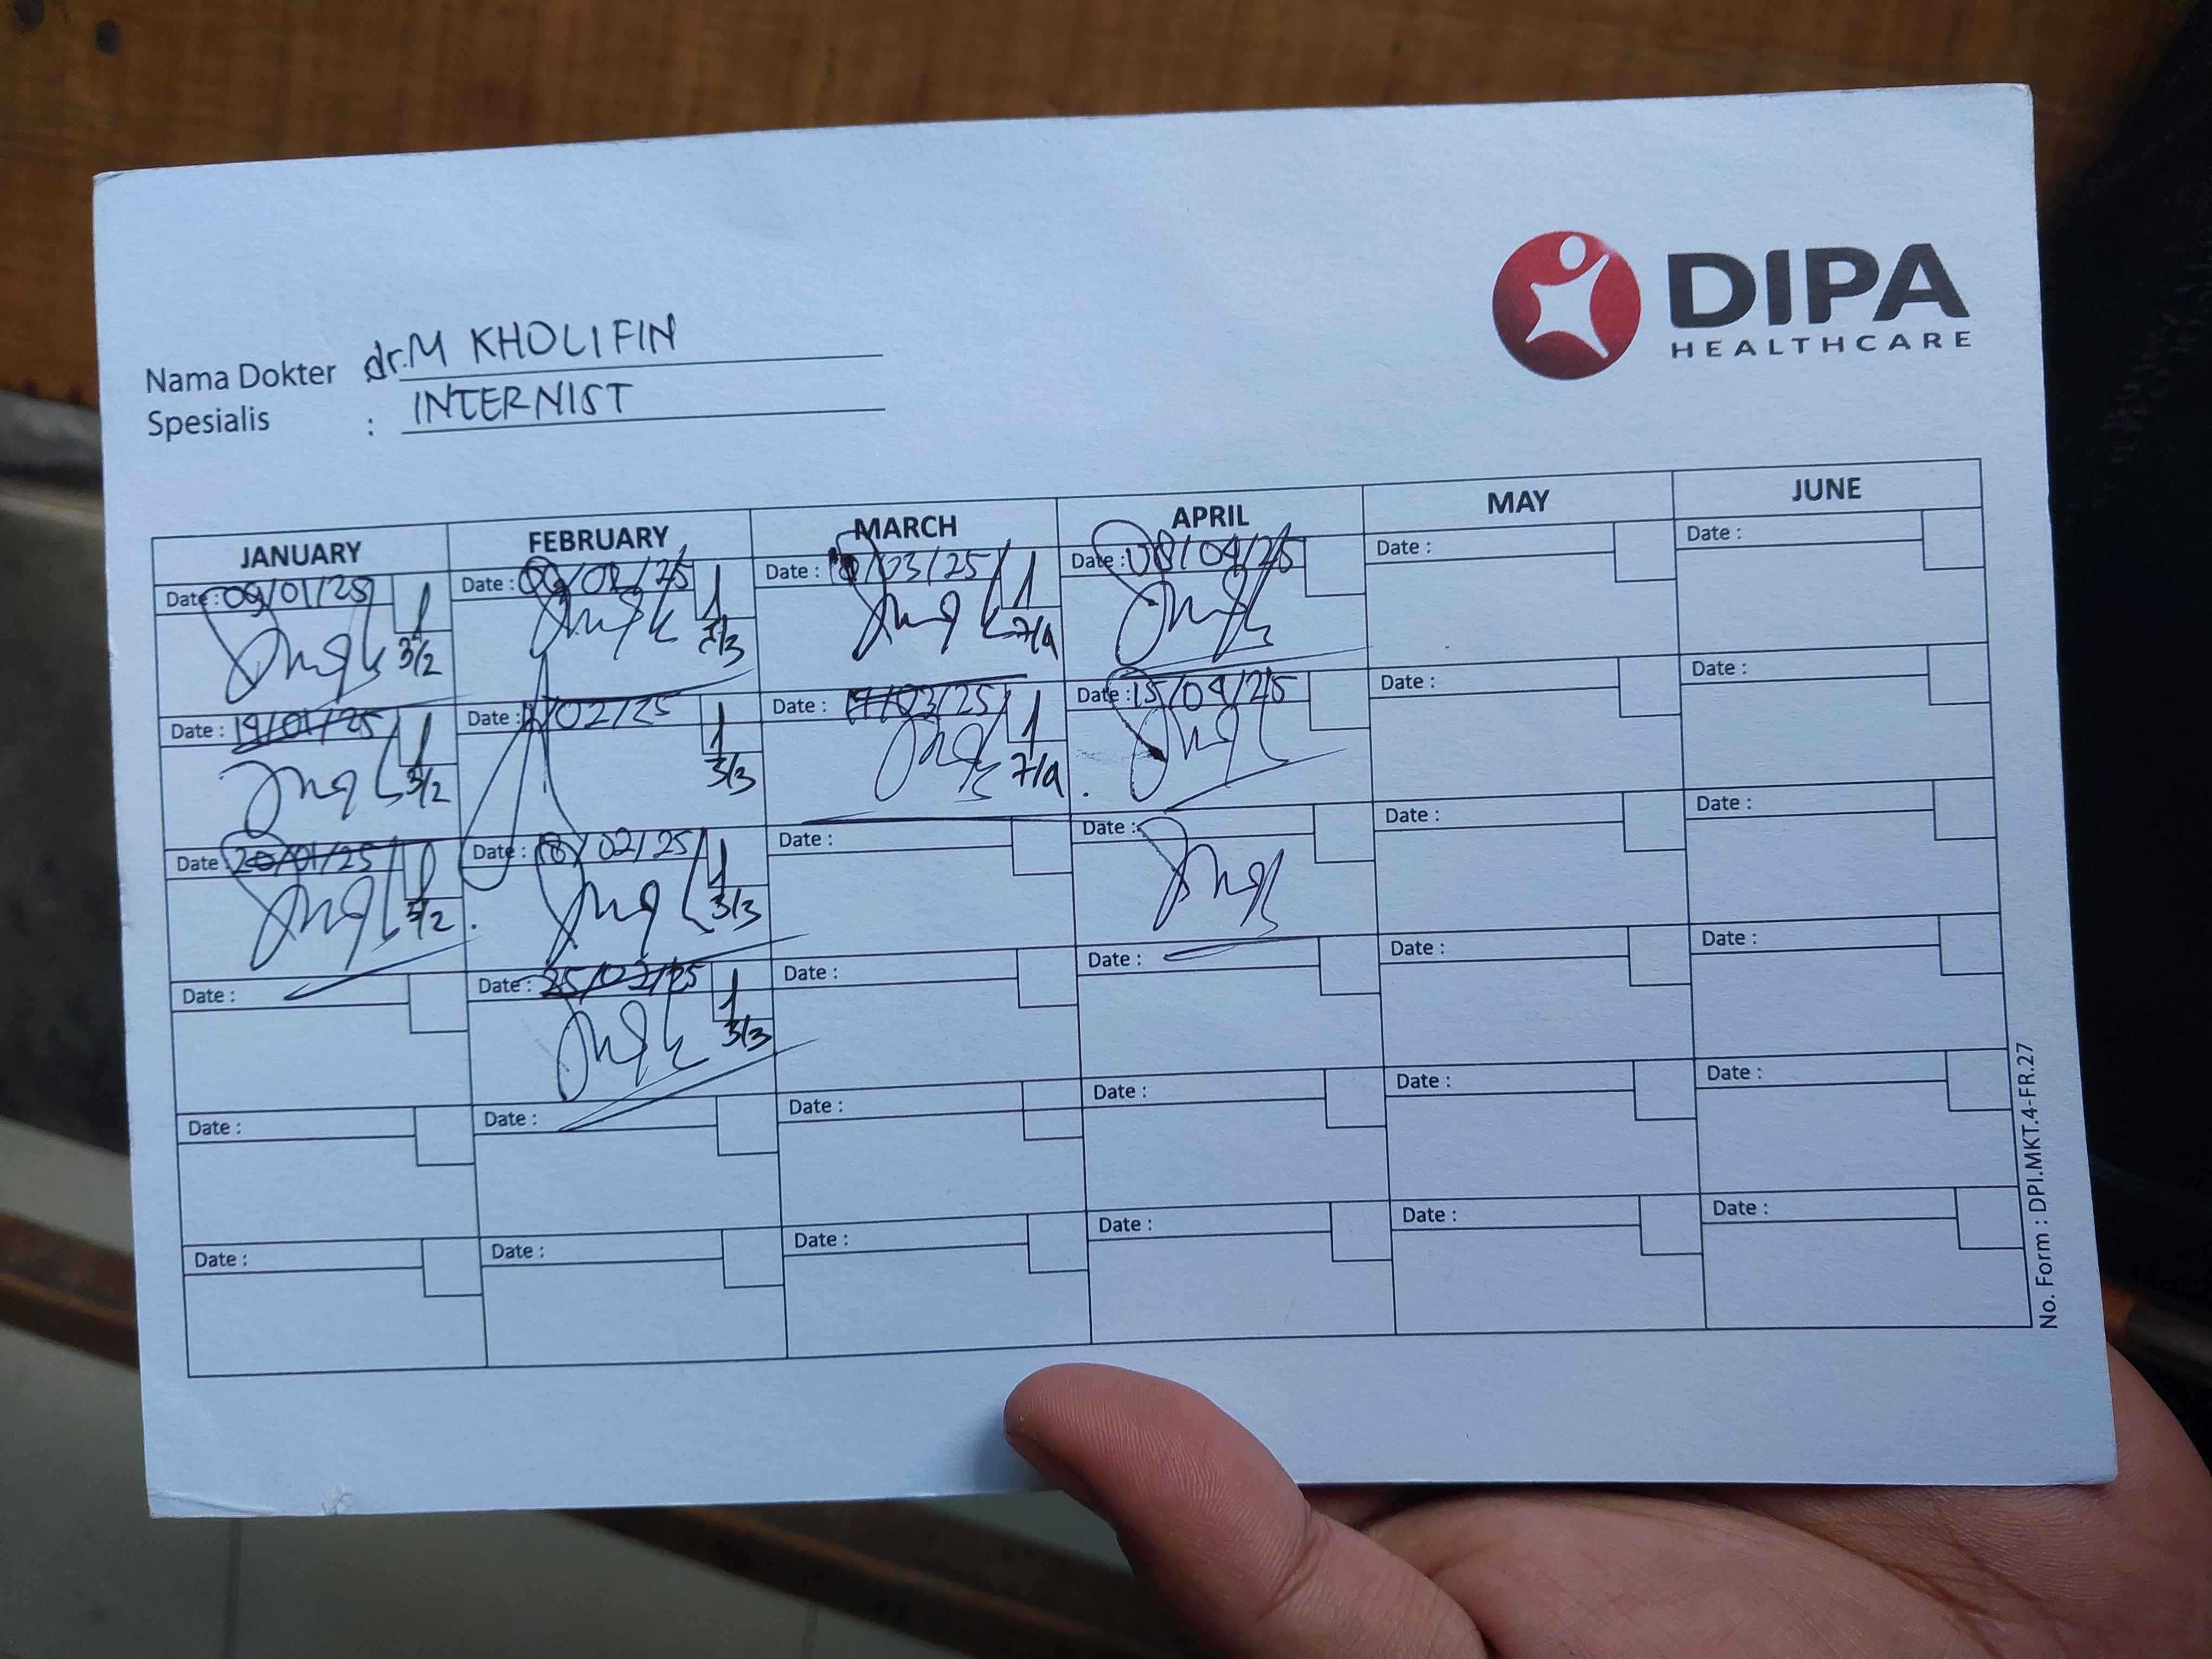 DIPA
HEALTHCARE
Nama Dokter dr. M KHOLIFIN
Spesialis : INTERNIST
JANUARY FEBRUARY MARCH APRIL MAY JUNE
Date : 09/01/25 1 Date : /25 1 Date : /03/25 1 Date : 08/04/25 Date : Date :
3/2 3/3 7/4
Date : 14/01/25 1 Date : /02/25 1 Date : /03/25 1 Date : 15/04/25 Date : Date :
3/2 3/3 7/4
Date : 20/01/25 1 Date : 18/02/25 1 Date : Date : Date : Date :
3/2 3/3
Date : Date : 25/02/25 1 Date : Date : Date : Date :
3/3
Date : Date : Date : Date : Date : Date :
Date : Date : Date : Date : Date : Date :
No. Form : DPI.MKT.4-FR.27